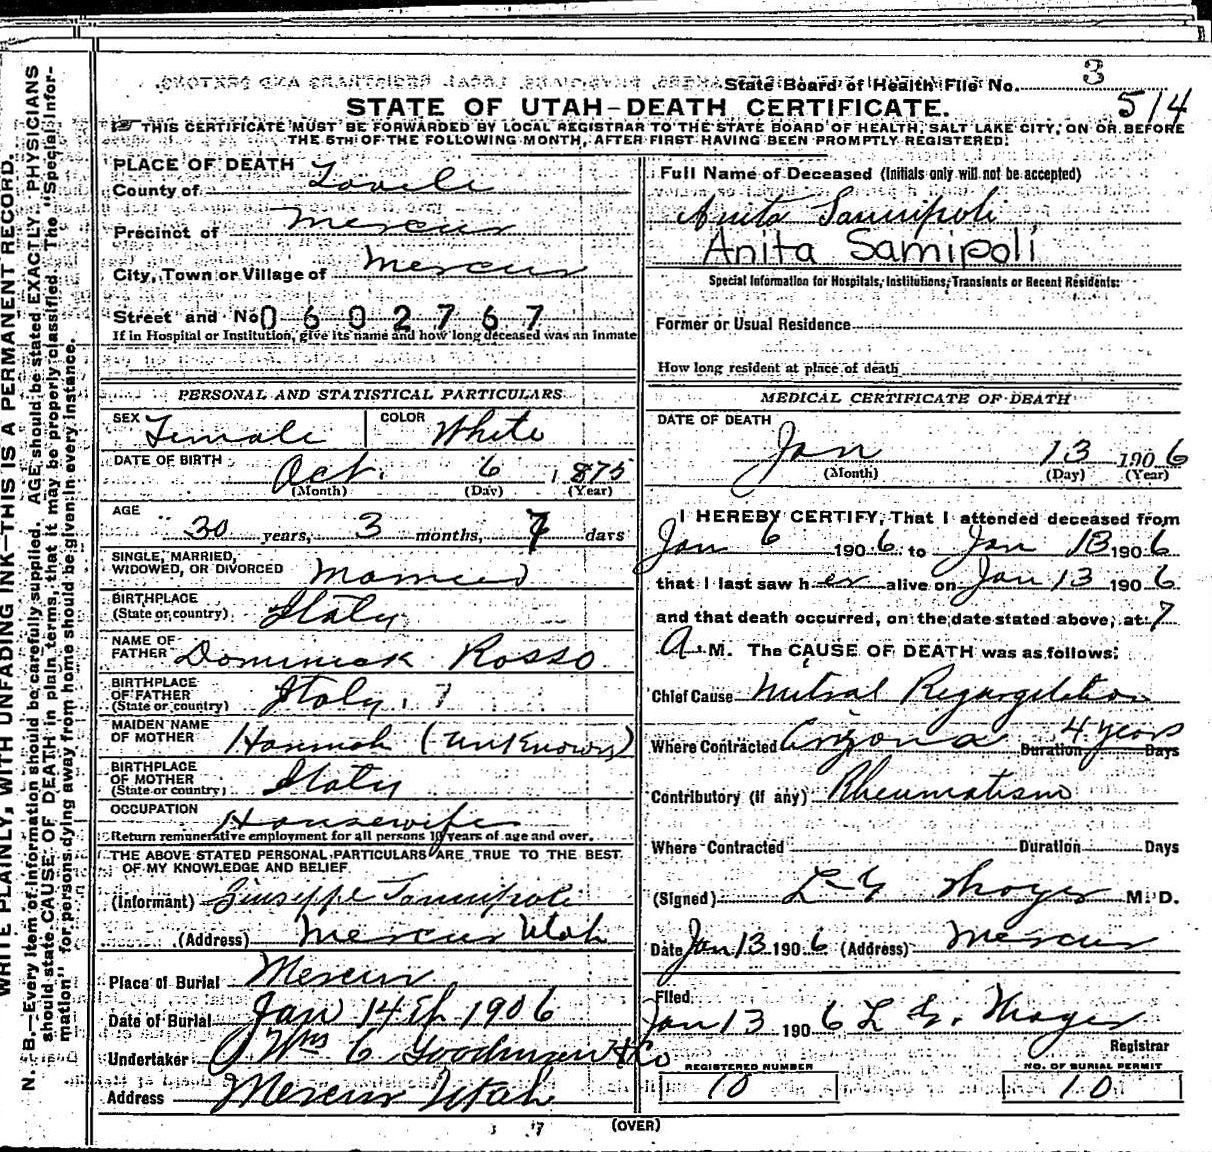 State Board of Health File No. 3
514
STATE OF UTAH–DEATH CERTIFICATE.
THIS CERTIFICATE MUST BE FORWARDED BY LOCAL REGISTRAR TO THE STATE BOARD OF HEALTH, SALT LAKE CITY, ON OR BEFORE
THE 5TH OF THE FOLLOWING MONTH, AFTER FIRST HAVING BEEN PROMPTLY REGISTERED.
WRITE PLAINLY, WITH UNFADING INK—THIS IS A PERMANENT RECORD.
N. B.—Every item of information should be carefully supplied. AGE should be stated EXACTLY. PHYSICIANS
should state CAUSE OF DEATH in plain terms, that it may be properly classified. The "Special Infor-
mation" for persons dying away from home should be given in every instance.
PLACE OF DEATH
County of Tooele
Precinct of Mercur
City, Town or Village of Mercur
Street and No. 0602767
If in Hospital or Institution, give its name and how long deceased was an inmate
PERSONAL AND STATISTICAL PARTICULARS
SEX Female COLOR White
DATE OF BIRTH Oct. 6 1875
(Month) (Day) (Year)
AGE 30 years, 3 months, 7 days
SINGLE, MARRIED,
WIDOWED, OR DIVORCED Married
BIRTHPLACE
(State or country) Italy
NAME OF
FATHER Dominick Rosso
BIRTHPLACE
OF FATHER
(State or country) Italy
MAIDEN NAME
OF MOTHER Hannah (unknown)
BIRTHPLACE
OF MOTHER
(State or country) Italy
OCCUPATION
Housewife
Return remunerative employment for all persons 10 years of age and over.
THE ABOVE STATED PERSONAL PARTICULARS ARE TRUE TO THE BEST
OF MY KNOWLEDGE AND BELIEF
(Informant) Giuseppe Samipoli
(Address) Mercur Utah
Place of Burial Mercur
Date of Burial Jan 14th 1906
Undertaker Wm C Goodmsen & Co
Address Mercur Utah
Full Name of Deceased (Initials only will not be accepted)
Anita Samipoli
Anita Samipoli
Special Information for Hospitals, Institutions, Transients or Recent Residents:
Former or Usual Residence
How long resident at place of death
MEDICAL CERTIFICATE OF DEATH
DATE OF DEATH
Jan 13 1906
(Month) (Day) (Year)
I HEREBY CERTIFY, That I attended deceased from
Jan 6 1906 to Jan 13 1906
that I last saw her alive on Jan 13 1906
and that death occurred, on the date stated above, at 7
A. M. The CAUSE OF DEATH was as follows:
Chief Cause Mitral Regurgitation
Where Contracted Arizona Duration 4 years Days
Contributory (if any) Rheumatism
Where Contracted Duration Days
(Signed) L G Thayer M. D.
Date Jan 13 1906 (Address) Mercur
Filed
Jan 13 1906 L G. Thayer
Registrar
REGISTERED NUMBER
10
NO. OF BURIAL PERMIT
10
(OVER)